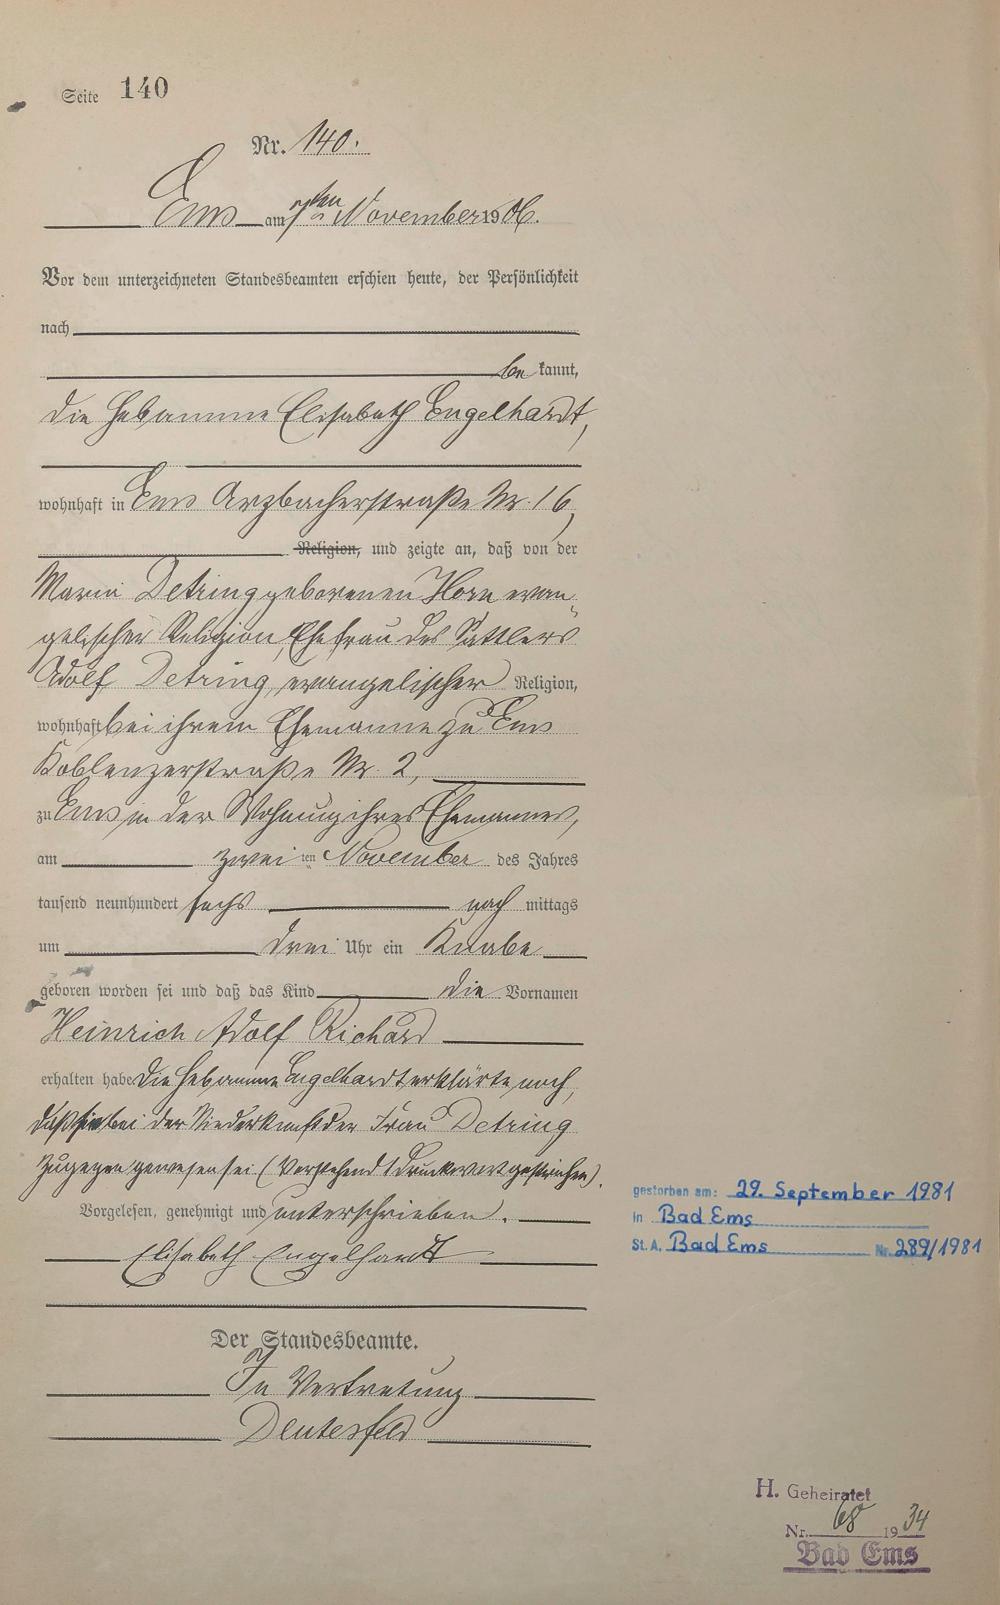 Seite 140
Nr. 140.
Ems am 7ten November 1906.
Vor dem unterzeichneten Standesbeamten erschien heute, der Persönlichkeit
nach
be kannt,
die Hebamme Elisabeth Engelhardt,
wohnhaft in Ems Arzbacherstraße Nr. 16,
Religion, und zeigte an, daß von der
Maria Detring geborenen Horn evan„
gelischer Religion, Ehefrau des Sattlers
Adolf Detring, evangelischer Religion,
wohnhaft bei ihrem Ehemanne zu Ems
Koblenzerstraße Nr. 2,
zu Ems in der Wohnung ihres Ehemannes,
am zwei ten November des Jahres
tausend neunhundert sechs nach mittags
um drei Uhr ein Knabe
geboren worden sei und daß das Kind die Vornamen
Heinrich Adolf Richard
erhalten habe Die Hebamme Engelhardt erklärte noch,
daß sie bei der Niederkunft der Frau Detring
zugegen gewesen sei (Vorstehend 1 Druckwort gestrichen).
Vorgelesen, genehmigt und unterschrieben.
Elisabeth Engelhardt
Der Standesbeamte.
In Vertretung
gestorben am: 29. September 1981
in Bad Ems
St. A. Bad Ems Nr. 289/1981
H. Geheiratet
Nr. 68 1934
Bad Ems